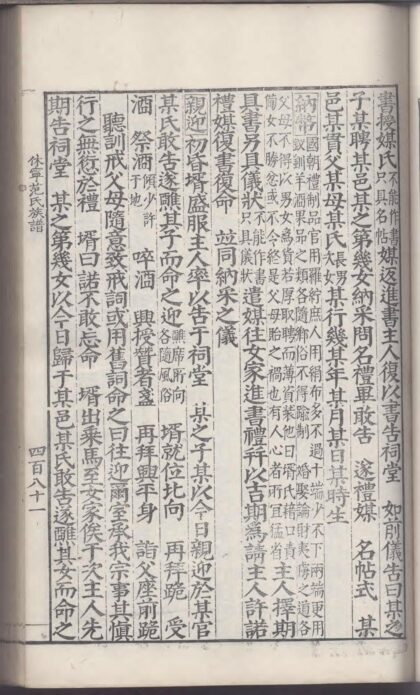 書授媒不能作書只具名帖媒返進書主人復以書告祠堂 如前儀告曰某之
子某聘某邑某之第幾女納采問名禮畢敢告 遂禮媒 名帖式 某
邑某貫父某母某氏長男大女某行幾某年某月某日某時生
納幣國朝禮制品官用羅綺庶人用絹布多不過十端少不下兩端更用釵釧羊酒果品之類各隨鄉俗不得踰制 婚娶論財夷虜之道各
父母不得以男女爲貨若厚取聘而薄資裝他曰壻氏藉口責備女不勝忿或不令終是父母胎之禍也有人心者所宜猛省主人擇期
具書另具儀狀不能作書只具儀狀遣媒往女家進書禮并以吉期爲請主人許諾
禮媒復書復命 並同納采之儀
親迎初昏壻盛服主人率以告于祠堂 某之子某以今日親迎於某官
某氏敢告遂醮其子而命之迎醮席所向各隨風俗 壻就位北向 再拜跪 受
酒 祭酒傾少許于地 啐酒 興授贊者盞 再拜興平身 詣父座前跪
聽訓戒父母隨意致戒詞或用舊詞命之曰往迎爾室承我宗事其慎
行之無愆於禮 壻曰諾不敢忘命 壻出乘馬至女家俟于次主人先
期告祠堂 某之第幾女以今日歸于某邑某氏敢告遂醮其女而命之
休寧范氏族譜
四百八十一